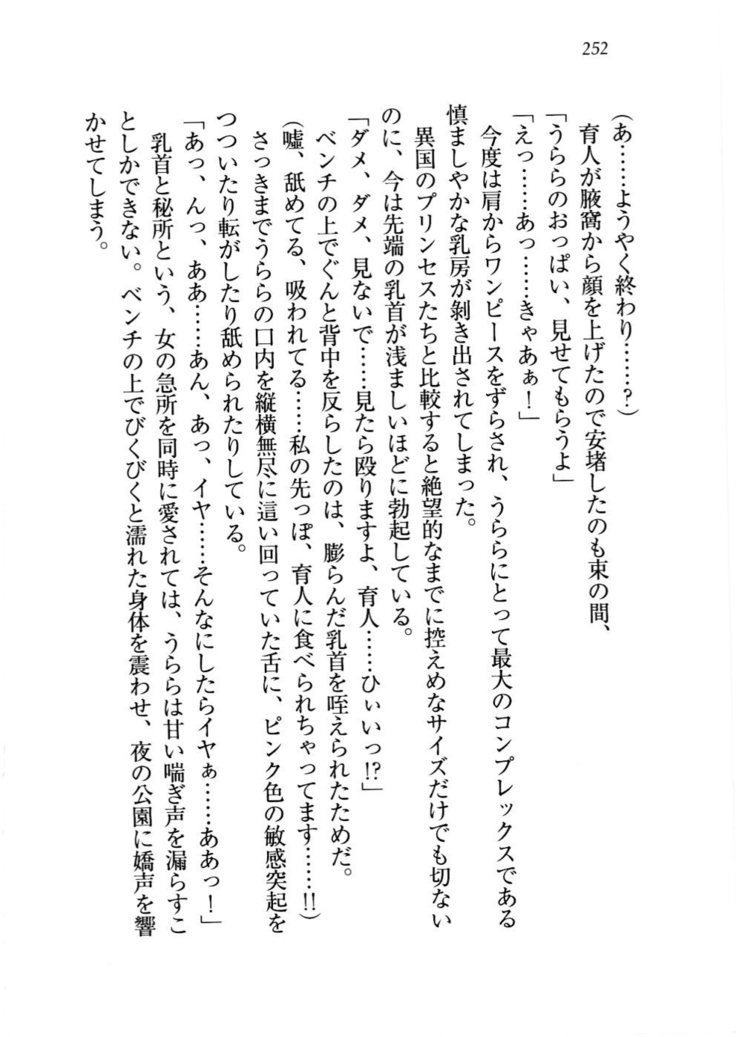 252
(あ……ようやく終わり……?)
育人が腋窩から顔を上げたので安堵したのも束の間、
「うららのおっぱい、見せてもらうよ」
「えっ……あっ……きゃあぁ！」
今度は肩からワンピースをずらされ、うららにとって最大のコンプレックスである
慎ましやかな乳房が剝き出されてしまった。
異国のプリンセスたちと比較すると絶望的なまでに控えめなサイズだけでも切ない
のに、今は先端の乳首が浅ましいほどに勃起している。
「ダメ、ダメ、見ないで……見たら殴りますよ、育人……ひぃいっ!?」
ベンチの上でぐんと背中を反らしたのは、膨らんだ乳首を咥えられたためだ。
(嘘、舐めてる、吸われてる……私の先っぽ、育人に食べられちゃってます……!!)
さっきまでうららの口内を縦横無尽に這い回っていた舌に、ピンク色の敏感突起を
つついたり転がしたり舐められたりしている。
「あっ、んっ、ああ……あん、あっ、イヤ……そんなにしたらイヤぁ……ああっ！」
乳首と秘所という、女の急所を同時に愛されては、うららは甘い喘ぎ声を漏らすこ
としかできない。ベンチの上でびくびくと濡れた身体を震わせ、夜の公園に嬌声を響
かせてしまう。